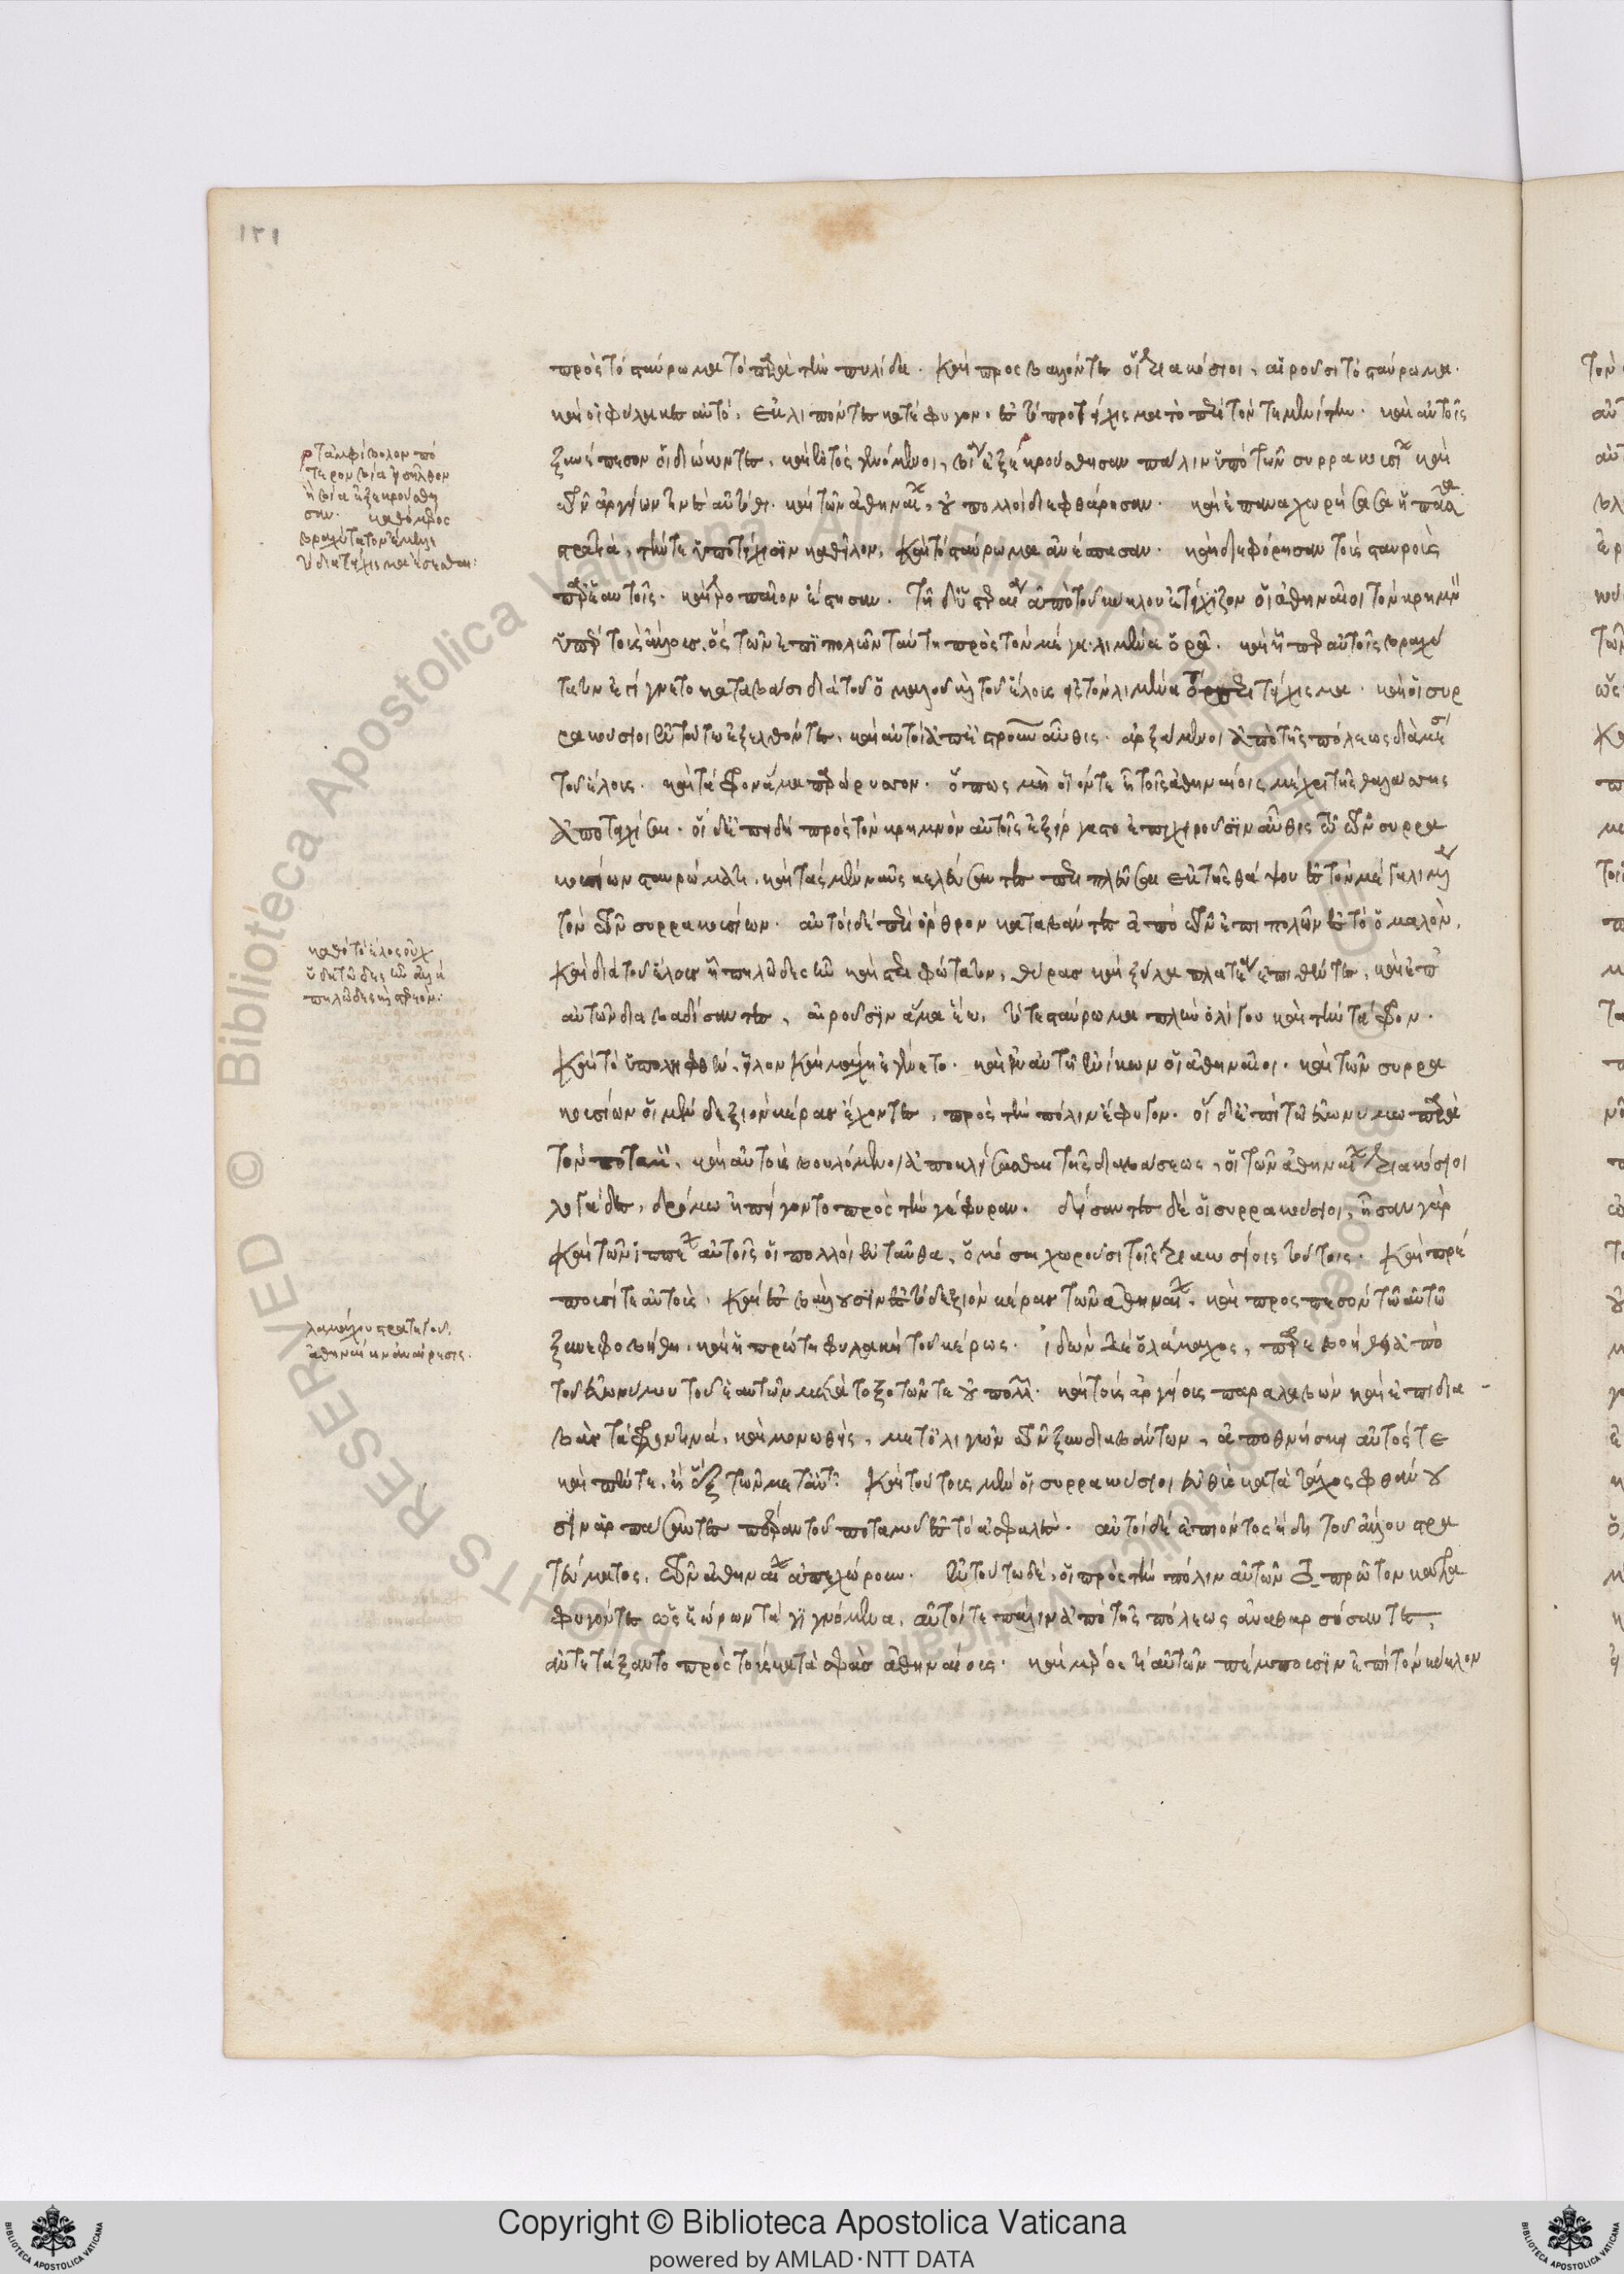 πρὸς τὸ σταύρωμα τὸ παρὰ τὴν πυλίδα. καὶ προσβαλόντες οἱ τριακόσιοι, αἱροῦσι τὸ σταύρωμα.
καὶ οἱ φύλακες αὐτὸ ἐκλιπόντες κατέφυγον ἐς τὸ προτείχισμα τὸ περὶ τὸν τεμενίτην. καὶ αὐτοῖς
ξυνέπεσον οἱ διώκοντες. καὶ ἐντὸς γενόμενοι, βίᾳ ἐξεκρούσθησαν πάλιν ὑπὸ τῶν συρρακουσίων καὶ
τῶν ἀργείων τινὲς αὐτόθι. καὶ τῶν ἀθηναίων οὐ πολλοὶ διεφθάρησαν. καὶ ἐπαναχωρήσασα ἡ πᾶσα
στρατιά, τήν τε ὑποτείχισιν καθεῖλον, καὶ τὸ σταύρωμα ἀνέσπασαν. καὶ διεφόρησαν τοὺς σταυροὺς
παρ' ἑαυτοῖς. καὶ τροπαῖον ἔστησαν. τῇ δ' ὑστεραίᾳ ἀπὸ τοῦ κύκλου ἐτείχιζον οἱ ἀθηναῖοι τὸν κρημνὸν
ὑπὲρ τοῦ ἕλους, ὃς τῶν ἐπιπολῶν ταύτῃ πρὸς τὸν μέγαν λιμένα ὁρᾷ. καὶ ᾗπερ αὐτοῖς βραχύ
τατον ἐγίγνετο καταβᾶσι διὰ τοῦ ὁμαλοῦ καὶ τοῦ ἕλους ἐς τὸν λιμένα τὸ περιτείχισμα. καὶ οἱ συρ
ρακούσιοι ἐν τούτῳ ἐξελθόντες, καὶ αὐτοὶ ἀπεσταύρουν αὖθις ἀρξάμενοι ἀπὸ τῆς πόλεως διὰ μέσου
τοῦ ἕλους. καὶ τάφρον ἅμα παρώρυσσον. ὅπως μὴ οἷόν τε ᾖ τοῖς ἀθηναίοις μέχρι τῆς θαλάσσης
ἀποτειχίσαι. οἱ δ' ἐπειδὴ πρὸς τὸν κρημνὸν αὐτοῖς ἐξείργαστο ἐπιχειροῦσιν αὖθις τῷ τῶν συρρα
κουσίων σταυρώματι. καὶ τὰς μὲν ναῦς κελεύσαντες περιπλεῦσαι ἐκ τῆς θάψου ἐς τὸν μέγαν λιμένα
τὸν τῶν συρρακουσίων. αὐτοὶ δὲ περὶ ὄρθρον καταβάντες ἀπὸ τῶν ἐπιπολῶν ἐς τὸ ὁμαλὸν,
καὶ διὰ τοῦ ἕλους ᾗ πηλῶδες ἦν καὶ στεριφώτατον, θύρας καὶ ξύλα πλατέα ἐπιθέντες, καὶ ἐπ'
αὐτῶν διαβαδίσαντες, αἱροῦσιν ἅμα ἕῳ, τό τε σταύρωμα πλὴν ὀλίγου καὶ τὴν τάφρον.
καὶ τὸ ὑπολειφθὲν εἷλον καὶ μάχη ἐγένετο. καὶ ἐν αὐτῇ ἐνίκων οἱ ἀθηναῖοι. καὶ τῶν συρρα
κουσίων οἱ μὲν δεξιὸν κέρας ἔχοντες, πρὸς τὴν πόλιν ἔφυγον. οἱ δ' ἐπὶ τῷ εὐωνύμῳ παρὰ
τὸν ποταμόν. καὶ αὐτοὺς βουλόμενοι ἀποκλήσασθαι τῆς διαβάσεως, οἱ τῶν ἀθηναίων τριακόσιοι
λογάδες, δρόμῳ ἠπείγοντο πρὸς τὴν γέφυραν. δείσαντες δὲ οἱ συρρακούσιοι, ἦσαν γὰρ
καὶ τῶν ἱππέων αὐτοῖς οἱ πολλοὶ ἐνταῦθα, ὁμόσε χωροῦσι τοῖς τριακοσίοις τούτοις. καὶ τρέ
πουσί τε αὐτοὺς. καὶ ἐσβάλλουσιν ἐς τὸ δεξιὸν κέρας τῶν ἀθηναίων. καὶ προσπεσόντων αὐτῶν
ξυνεφοβήθη καὶ ἡ πρώτη φυλακὴ τοῦ κέρως. ἰδὼν δὲ ὁ λάμαχος, παρεβοήθει ἀπὸ
τοῦ εὐωνύμου τοῦ ἑαυτῶν μετὰ τοξοτῶν τε οὐ πολλῶν. καὶ τοὺς ἀργείους παραλαβὼν καὶ ἐπιδια
βὰς τάφρον τινά, καὶ μονωθεὶς, μετ' ὀλίγων τῶν ξυνδιαβάντων, ἀποθνήσκει αὐτός τε
καὶ πέντε ἢ ἓξ τῶν μετ' αὐτοῦ. καὶ τούτους μὲν οἱ συρρακούσιοι εὐθὺς κατὰ τάχος φθάνου
σιν ἁρπάσαντες πέραν τοῦ ποταμοῦ ἐς τὸ ἀσφαλές. αὐτοὶ δὲ ἐπιόντος ἤδη τοῦ ἄλλου στρα
τεύματος, τῶν ἀθηναίων ἀπεχώρουν. ἐν τούτῳ δὲ, οἱ πρὸς τὴν πόλιν αὐτῶν τὸ πρῶτον κατα
φυγόντες ὡς ἑώρων τὰ γιγνόμενα, αὐτοί τε πάλιν ἀπὸ τῆς πόλεως ἀναθαρσήσαντες,
ἀντετάξαντο πρὸς τοὺς κατὰ σφᾶς ἀθηναίους. καὶ μέρος τι αὐτῶν πέμπουσιν ἐπὶ τὸν κύκλον
τ' ἀμφίβολον πό
τερον βίᾳ εἰσῆλθον
ἢ βίᾳ ἐξεκρούσθη
σαν. καθ' ὃ μέρος
βραχύτατον ἔμελλε
τὸ διατείχισμα ἔσεσθαι:
καθὸ τὸ ἕλος οὐχ
ὑδατῶδες ἦν ἀλλὰ
πηλῶδες καὶ στερεόν:
λαμάχου στρατηγοῦ
ἀθηναίων ἀναίρεσις.
Copyright © Biblioteca Apostolica Vaticana
powered by AMLAD·NTT DATA